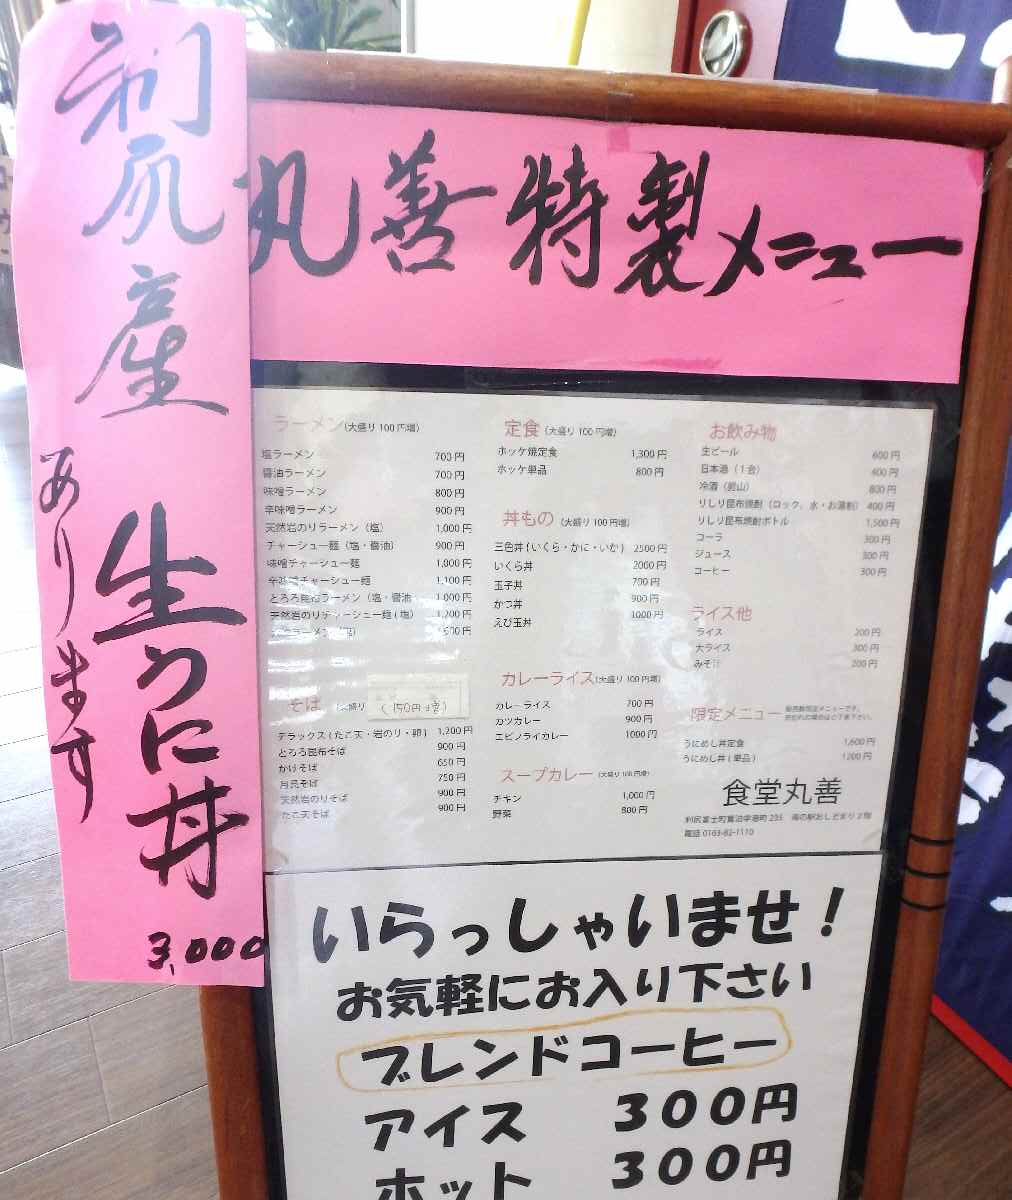 利尻産 生うに丼
あります
3,000
丸善特製メニュー
ラーメン(大盛り100円増)
塩ラーメン 700円
醤油ラーメン 700円
味噌ラーメン 800円
辛味噌ラーメン 900円
天然岩のりラーメン（塩） 1,000円
チャーシュー麺（塩・醤油） 900円
味噌チャーシュー麺 1,000円
辛味噌チャーシュー麺 1,100円
とろろ昆布ラーメン（塩・醤油 1,000円
天然岩のりチャーシュー麺(塩) 1,200円
ラーメン
そば
(150円増)
デラックス(たこ天・岩のり・卵) 1,200円
とろろ昆布そば 900円
かけそば 650円
月見そば 750円
天然岩のりそば 900円
たこ天そば 900円
定食(大盛り100円増)
ホッケ焼定食 1,300円
ホッケ単品 800円
丼もの(大盛り100円増)
三色丼(いくら・かに・いか) 2500円
いくら丼 2000円
玉子丼 700円
かつ丼 900円
えび玉丼 1000円
カレーライス(大盛り100円増)
カレーライス 700円
カツカレー 900円
エビフライカレー 1000円
スープカレー(大盛り100円増)
チキン 1,000円
野菜 800円
お飲み物
生ビール 600円
日本酒（1合） 400円
冷酒（男山） 800円
りしり昆布焼酎（ロック、水・お湯割） 400円
りしり昆布焼酎ボトル 1,500円
コーラ 300円
ジュース 300円
コーヒー 300円
ライス他
ライス 200円
大ライス 300円
みそ汁 200円
限定メニュー
うにめし丼定食 1,600円
うにめし丼(単品) 1200円
食堂丸善
利尻富士町鴛泊字港町235 海の駅おしどまり2階
電話 0163-82-1110
いらっしゃいませ！
お気軽にお入り下さい
ブレンドコーヒー
アイス 300円
ホット 300円